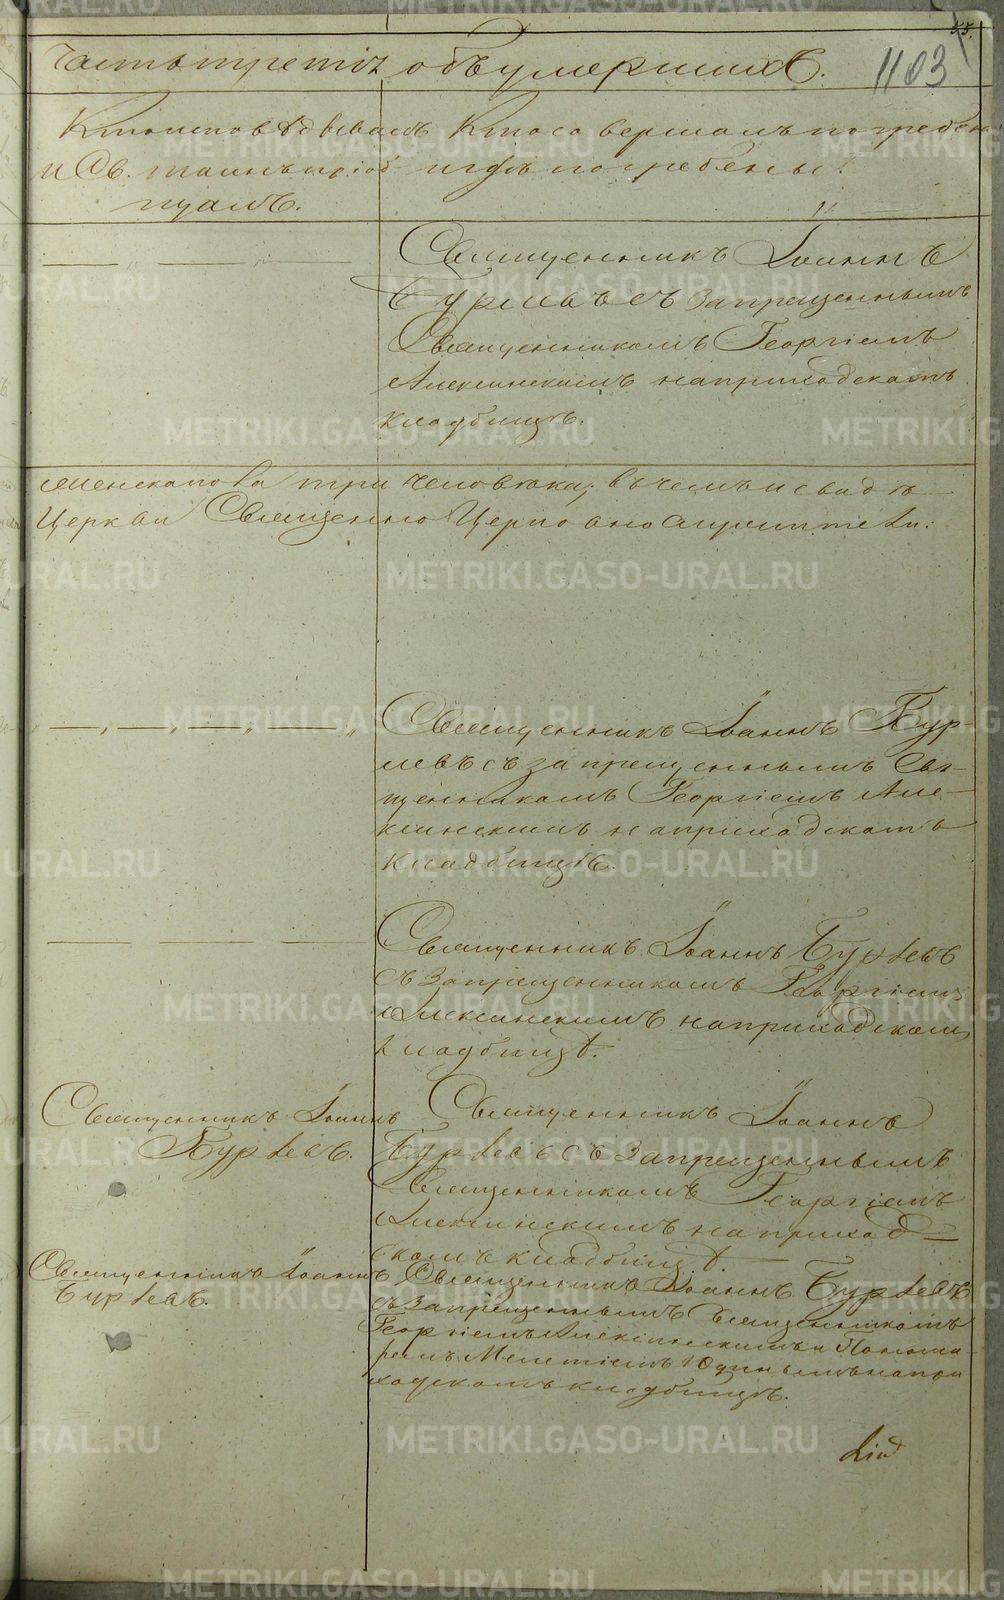 55.
1103
Часть третія объ умершихъ.
Кто исповѣдывалъ
и Св. таинъ пріоб-
щалъ.
Кто совершалъ погребеніе
и гдѣ погребены.
Священникъ Іоаннъ
Бурлевъ съ запрещеннымъ
Священникомъ Георгіемъ
Алексинскимъ на приходскомъ
кладбищѣ.
три человѣка; въ чемъ и свидѣ-
Церкви Священно Церковно служители:
Священникъ Іоаннъ Бур-
левъ съ запрещеннымъ Свя-
щенникомъ Георгіемъ Але-
ксинскимъ на приходскомъ
кладбищѣ.
Священникъ Іоаннъ Бурлевъ
съ Запрещенникомъ Георгіемъ
Алексинскимъ на приходскомъ
кладбищѣ.
Священникъ Іоаннъ
Бурлевъ.
Священникъ Іоаннъ
Бурлевъ съ Запрещеннымъ
Священникомъ Георгіемъ
Алексинскимъ на приход-
скомъ кладбищѣ.
Священникъ Іоаннъ
Бурлевъ.
Священникъ Іоаннъ Бурлевъ
съ Запрещеннымъ Священникомъ
Георгіемъ Алексинскимъ и Понома-
ремъ Мелетіемъ Юдинымъ на при
ходскомъ кладбищѣ.
METRIKI.GASO-URAL.RU